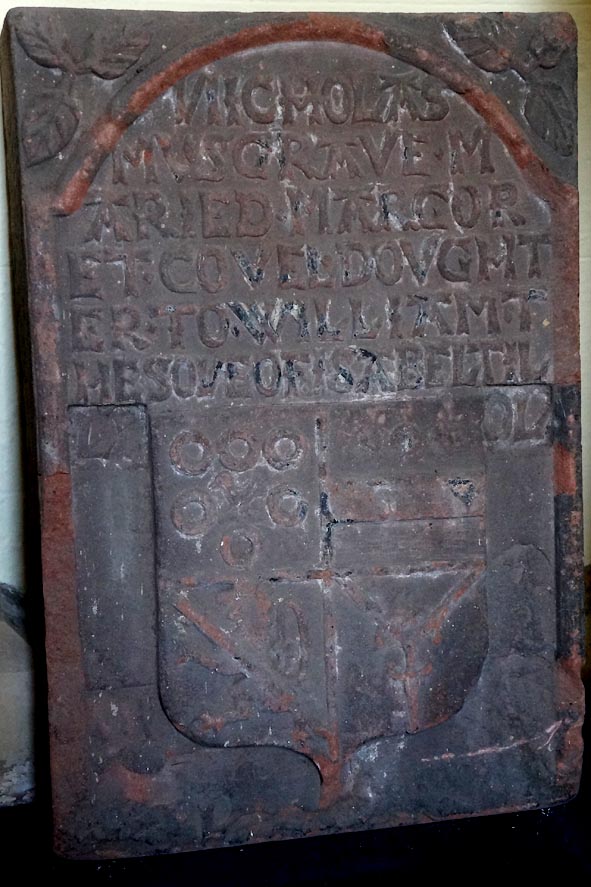 NICHOLAS
MVSGRAVE · M
ARIED · MARGOR
ET · COVEL · DOVGHT
ER · TO · WILLIAM · T
HE SONE OF ISABEL TIL